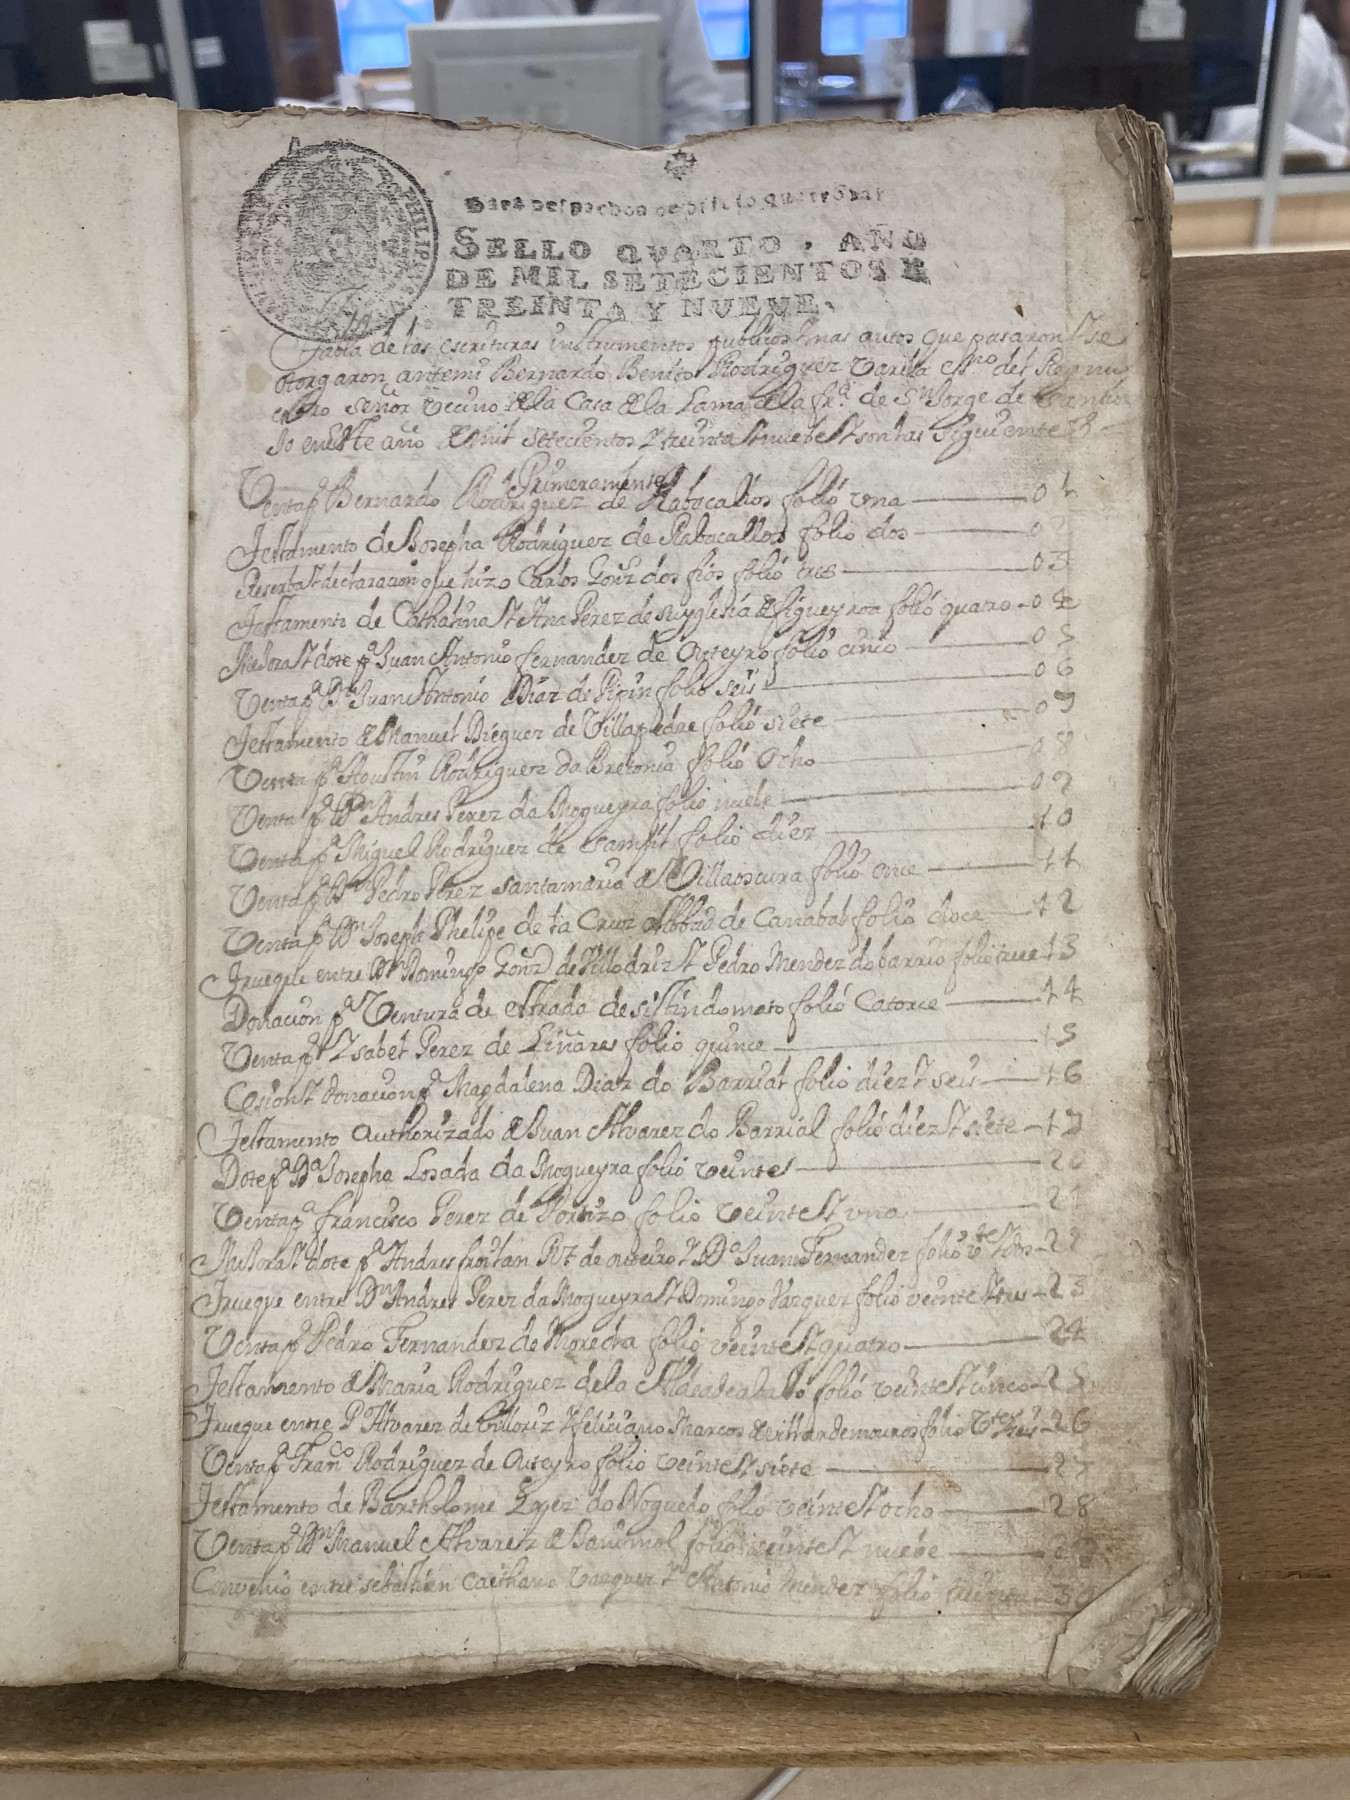 PHILIPP
SELLO QVARTO, AÑO
DE MIL SETECIENTOS Y
TREINTA Y NUEVE.
Tabla de las escrituras instrumentos publicos y mas autos que pasaron y se
otorgaron antemi Bernardo Benito Rodriguez Varela del
señor vecino de la Casa de la Lama de la fra. de Sn Jorge de
este año de mil setecientos y treinta y nuebe y son las siguientes
Primeramente
Venta pa Bernardo Rodriguez de Rabacallos folio una 01
Testamento de Josepha Rodriguez de Rabacallos folio dos 02
Reserba y declaracion que hizo Carlos Gonz dos folio tres 03
Testamento de Cathalina y Ana Perez de figueyroa folio quatro 04
Mejora y dote pa Juan Antonio fernandez de Outeyro folio cinco 05
Venta pa Dn Juan Antonio Diaz de Pipin folio seis 06
Testamento de Manuel Dieguez de Villapedre folio siete 07
Venta pa Agustin Rodriguez da Bretonia folio Ocho 08
Venta pa Dn Andres Perez da Nogueyra folio nuebe 09
Venta pa Miguel Rodriguez de Samfit folio diez 10
Venta pa Dn Pedro Perez Santamaria de Villaoscura folio Once 11
Venta pa Dn Joseph Phelipe de la Cruz Abbad de Canabal folio doce 12
Trueque entre Dn Domingo Gonz de y Pedro Mendez do barrio folio trece 13
Donacion pa Ventura de Estrada de folio Catorce 14
Venta pa Ysabel Perez de Liñares folio quince 15
Cesion y donacion pa Magdalena Diaz do Barrial folio diez y seis 16
Testamento authorizado de Juan Alvarez do Barrial folio diez y siete 17
Dote pa Da Josepha Losada da Nogueyra folio veinte 20
Venta pa francisco Perez de folio veinte y una 21
Mejora y dote pa Andres froilan de outeiro y Da Juana Fernandez folio vte y dos 22
Trueque entre Dn Andres Perez da Nogueyra y Domingo Vazquez folio veinte y tres 23
Venta pa Pedro Fernandez de Moreda folio veinte y quatro 24
Testamento de Maria Rodriguez de la Aldea de abajo folio veinte y cinco 25
Trueque entre Po Alvarez de Villoriz y feliciano Marcos de villar de mouros folio vte y seis 26
Venta pa Franco Rodriguez de Outeyro folio veinte y siete 27
Testamento de Bartholome Lopez do Noguedo folio veinte y ocho 28
Venta pa Dn Manuel Alvarez de folio veinte y nuebe 29
Convenio entre sebastian Caethano Vazquez y Antonio Mendez folio treinta 30